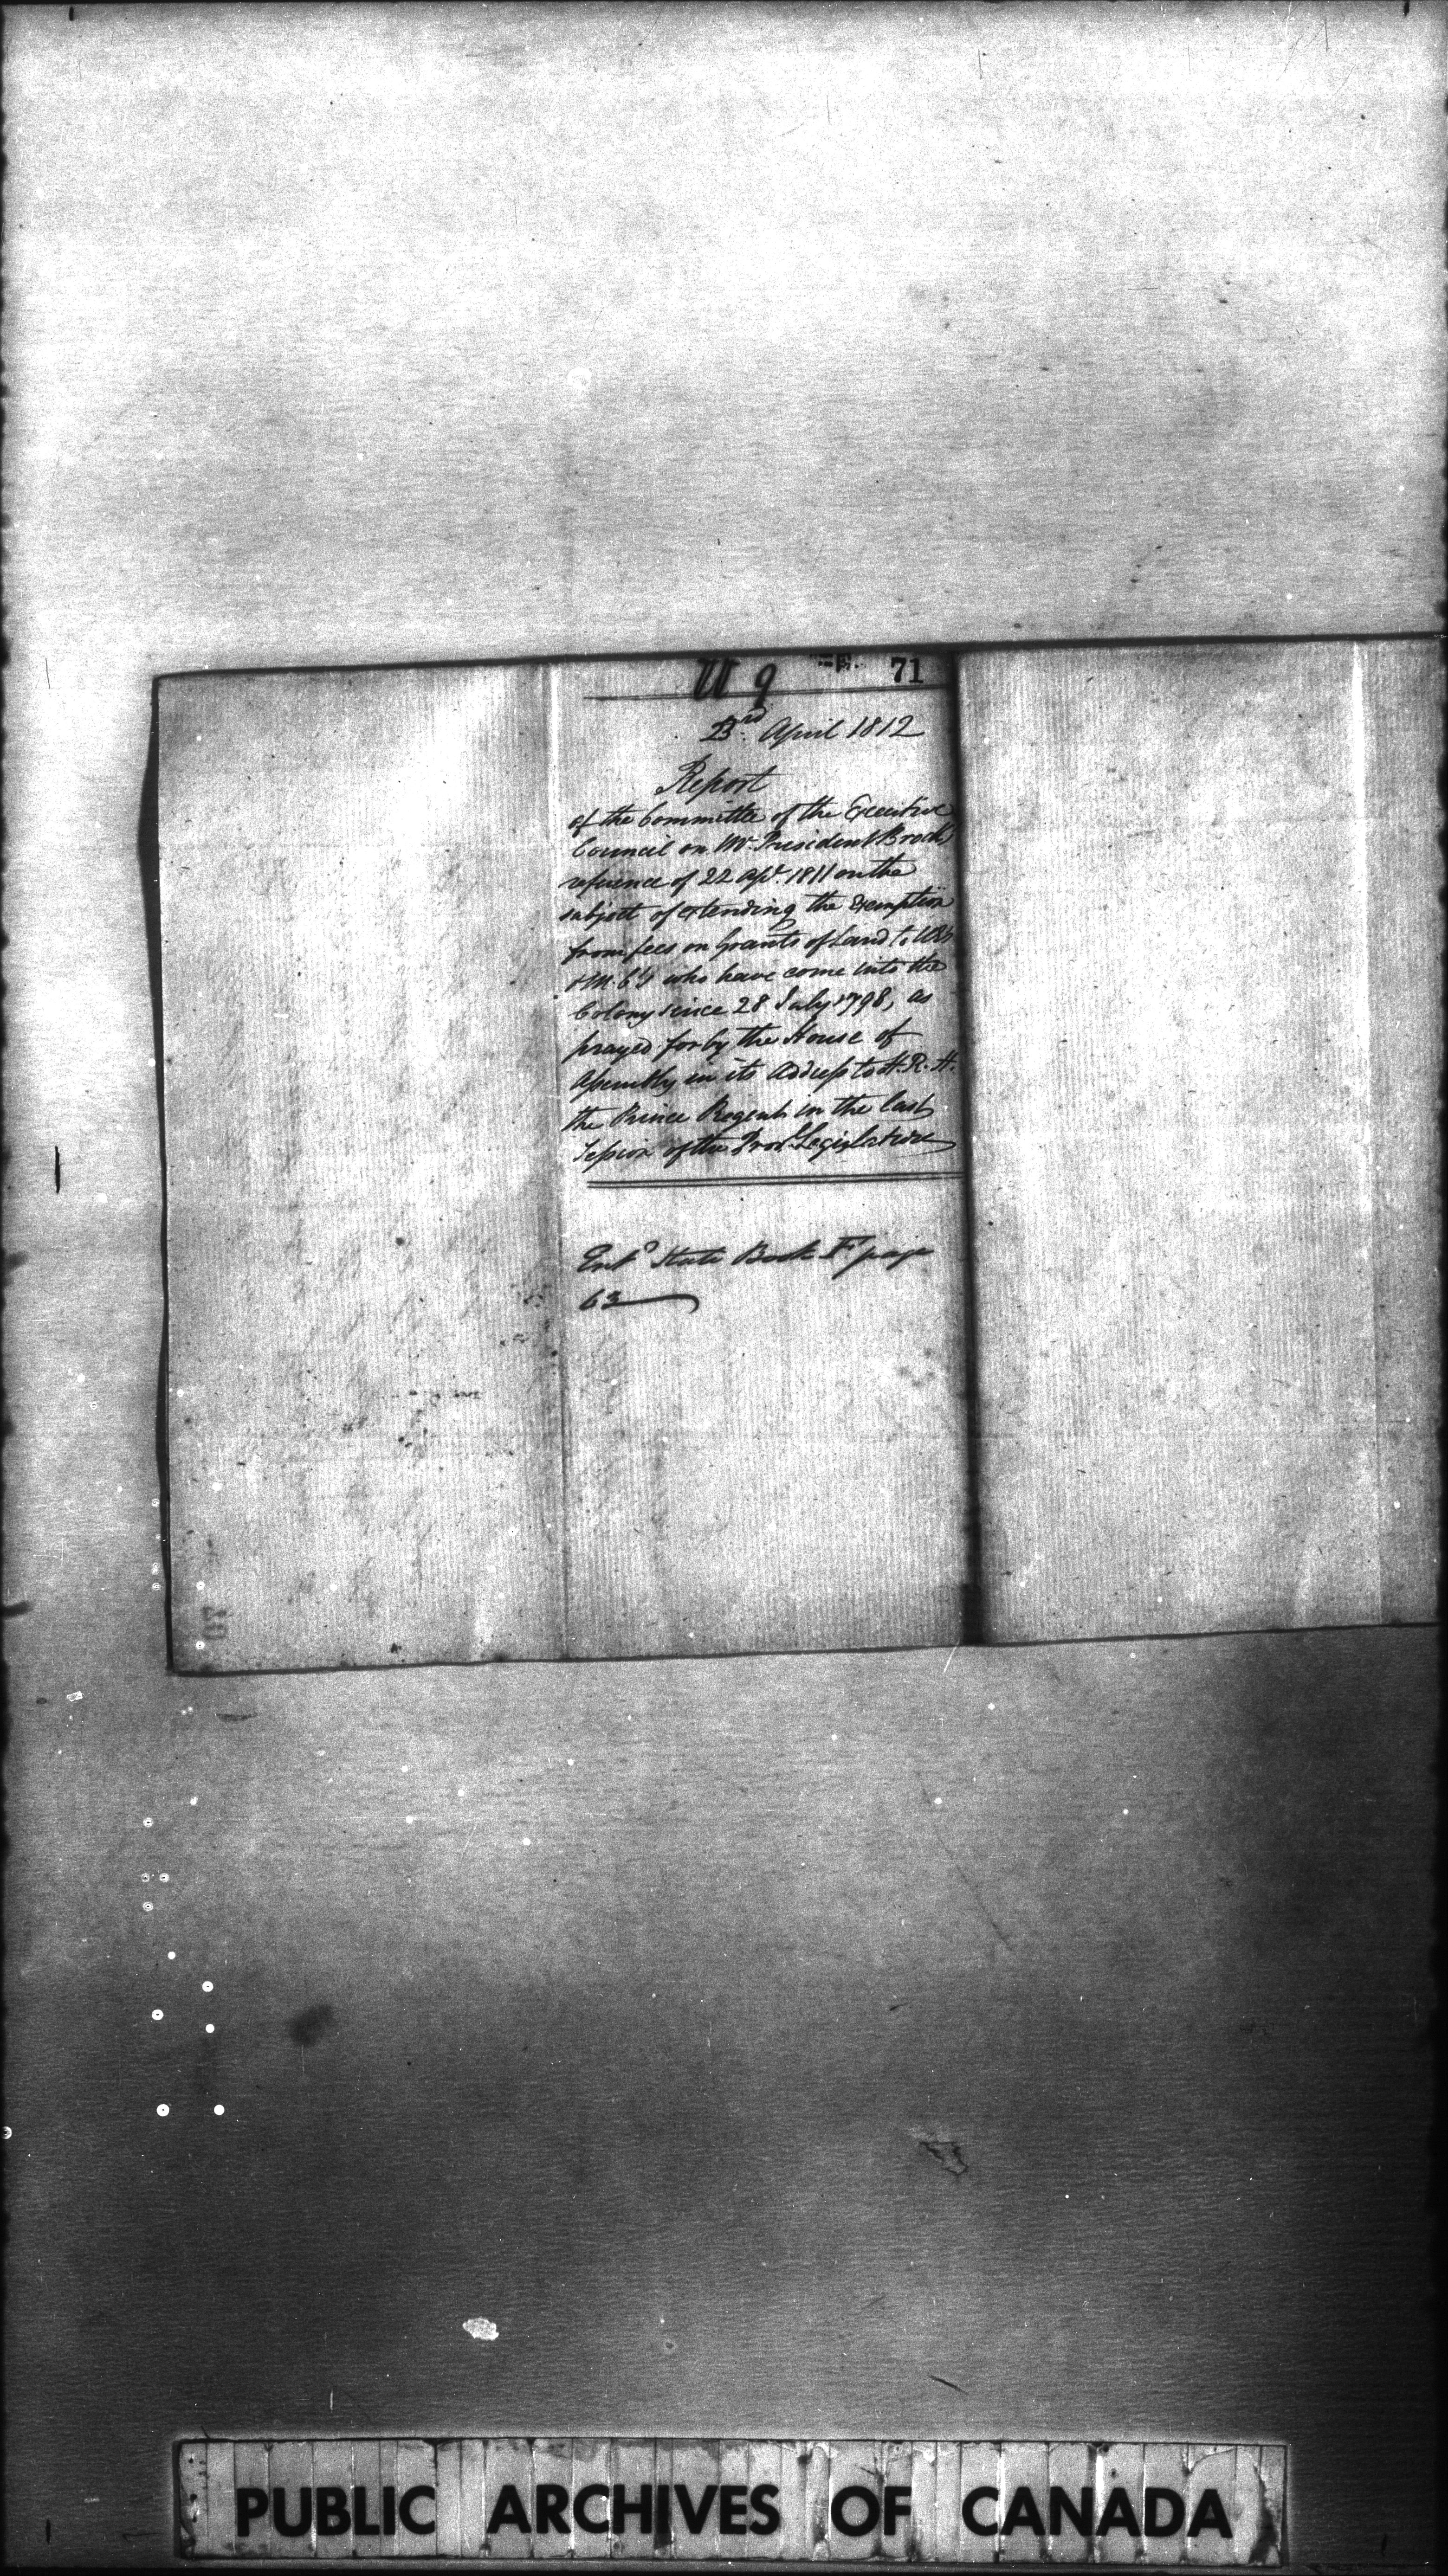 U 9 71
23rd April 1812
Report
of the Committee of the Executive
Council on Mr President Brock's
reference of 22 apl. 1811 on the
subject of extending the Exemption
from fees on Grants of Land to
& M. C's who have come into the
Colony since 28 July 1798, as
prayed for by the House of
Assembly in its Address to H. R. H.
the Prince Regent in the last
Session of the Prov.l Legislature
Entd State Book F page
63
PUBLIC ARCHIVES OF CANADA